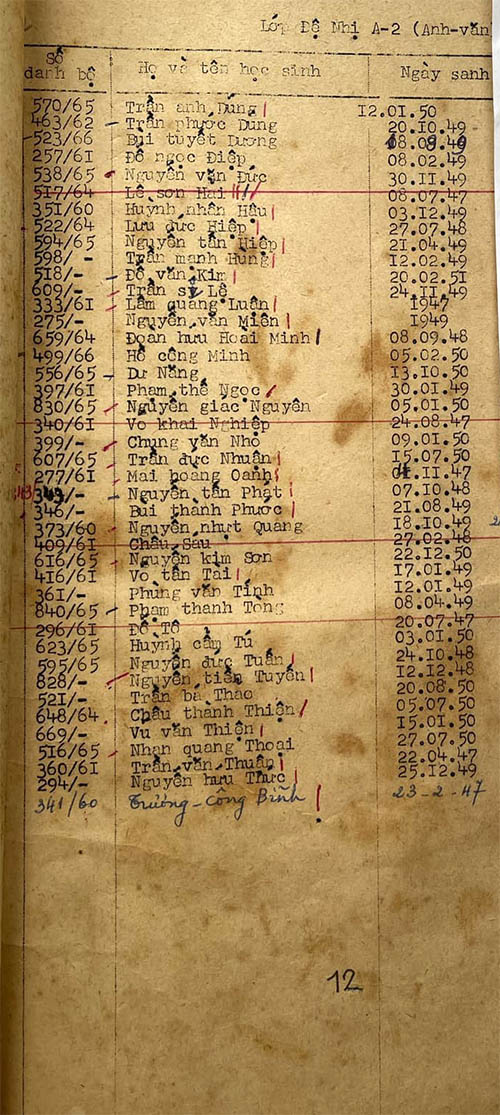 Lớp Đệ Nhị A-2 (Anh-văn
Số danh bộ Họ và tên học sinh Ngày sanh
570/65 Trần anh Dũng 12.01.50
463/62 Trần phước Dũng 20.10.49
523/66 Bùi tuyết Dương 08.9.49
257/61 Đỗ ngọc Điệp 08.02.49
538/65 Nguyễn văn Đức 30.11.49
517/64 Lê sơn Hai 08.07.47
351/60 Huỳnh nhân Hậu 03.12.49
522/64 Lưu đức Hiệp 27.07.48
594/65 Nguyễn tấn Hiệp 21.04.49
598/- Trần mạnh Hùng 12.02.49
518/- Đỗ văn Kim 20.02.51
609/- Trần sỹ Lê 24.11.49
333/61 Lâm quang Luân 1947
275/- Nguyễn văn Miên 1949
659/64 Đoạn hữu Hoài Minh 08.09.48
499/66 Hồ công Minh 05.02.50
556/65 Dư Năng 13.10.50
397/61 Phạm thế Ngọc 30.01.49
830/65 Nguyễn giác Nguyên 05.01.50
340/61 Võ khai Nghiệp 24.08.47
399/- Chung văn Nhỏ 09.01.50
607/65 Trần đức Nhuận 15.07.50
277/61 Mai hoàng Oanh 01.11.47
343/- Nguyễn tấn Phát 07.10.48
346/- Bùi thành Phước 21.08.49
373/60 Nguyễn nhựt Quang 18.10.49
409/61 Châu Sau 27.02.48
616/65 Nguyễn kim Sơn 22.12.50
416/61 Võ tấn Tài 17.01.49
361/- Phùng văn Tính 12.01.49
840/65 Phạm thanh Tòng 08.04.49
296/61 Đỗ Tô 20.07.47
623/65 Huỳnh cẩm Tú 03.01.50
595/65 Nguyễn đức Tuấn 24.10.48
828/- Nguyễn tiến Tuyến 12.12.48
521/- Trần bá Thảo 20.08.50
648/64 Châu thành Thiện 05.07.50
669/- Vũ văn Thiện 15.01.50
516/65 Nhan quang Thoại 27.07.50
360/61 Trần văn Thuận 22.04.47
294/- Nguyễn hữu Thức 25.12.49
341/60 Trương-Công Bỉnh 23-2-47
12